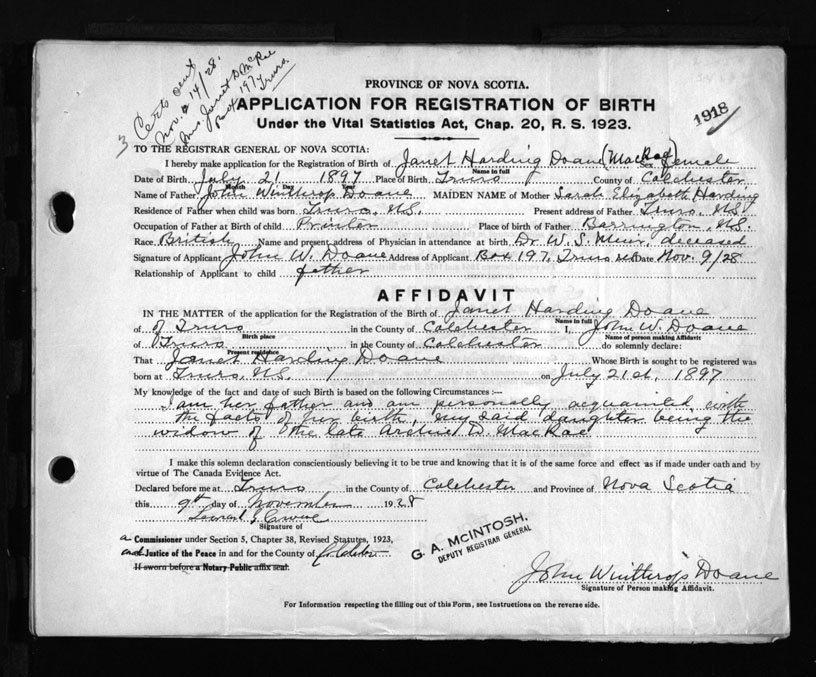 3 Certs sent
Nov. 14/28.
Mrs. Janet D. McRae
Box 197 Truro.
PROVINCE OF NOVA SCOTIA.
APPLICATION FOR REGISTRATION OF BIRTH
Under the Vital Statistics Act, Chap. 20, R. S. 1923.
1918
TO THE REGISTRAR GENERAL OF NOVA SCOTIA:
I hereby make application for the Registration of Birth of Janet Harding Doane (MacRae) Sex Female
Name in full
Date of Birth July 21 1897 Place of Birth Truro County of Colchester
Month Day Year
Name of Father John Winthrop Doane MAIDEN NAME of Mother Sarah Elizabeth Harding
Residence of Father when child was born Truro, N.S. Present address of Father Truro, N.S.
Occupation of Father at Birth of child Printer Place of birth of Father Barrington, N.S.
Race British Name and present address of Physician in attendance at birth Dr. W. S. Muir, deceased
Signature of Applicant John W. Doane Address of Applicant Box 197, Truro N.S. Date Nov. 9/28
Relationship of Applicant to child father
AFFIDAVIT
IN THE MATTER of the application for the Registration of the Birth of Janet Harding Doane
Name in full
of of Truro in the County of Colchester I, John W. Doane
Birth place Name of person making Affidavit
of Truro in the County of Colchester do solemnly declare:
Present residence
That Janet Harding Doane Whose Birth is sought to be registered was
born at Truro, N.S. on July 21st, 1897
My knowledge of the fact and date of such Birth is based on the following Circumstances :—
I am her father and am personally acquainted with
the facts of her birth, my said daughter being the
widow of the late Archie D. MacRae
I make this solemn declaration conscientiously believing it to be true and knowing that it is of the same force and effect as if made under oath and by
virtue of The Canada Evidence Act.
Declared before me at Truro in the County of Colchester and Province of Nova Scotia
this 9th day of November 1928
Signature of
a Commissioner under Section 5, Chapter 38, Revised Statutes, 1923,
and Justice of the Peace in and for the County of Colchester
If sworn before a Notary Public affix seal.
G. A. McINTOSH,
DEPUTY REGISTRAR GENERAL
John Winthrop Doane
Signature of Person making Affidavit.
For Information respecting the filling out of this Form, see Instructions on the reverse side.